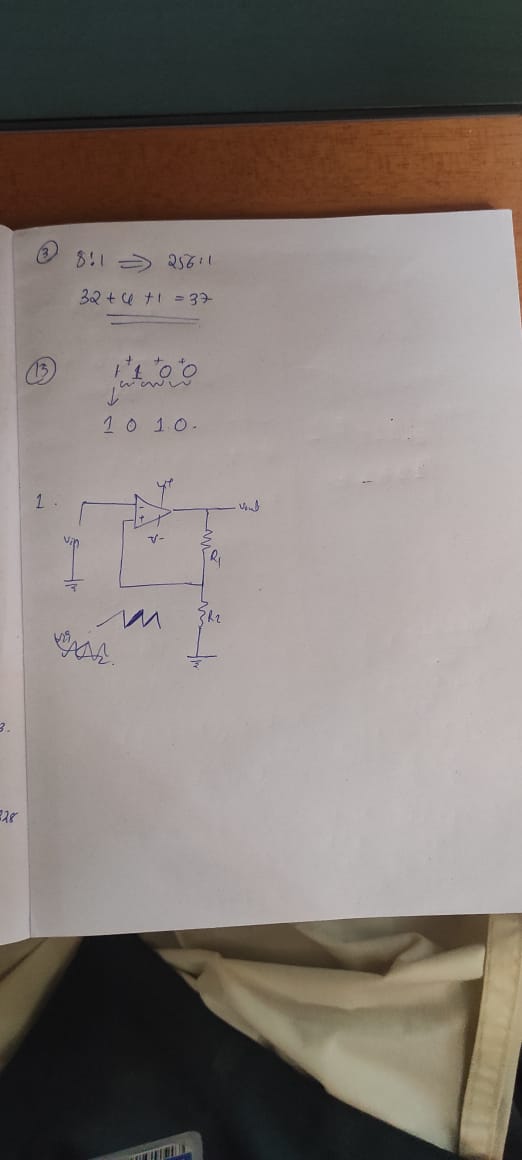 ③ 8:1 ⇒ 256:1
32 + 4 + 1 = 37
⑬ 1 + 1 + 0 + 0
↓
1 0 1 0.
1.
V+
-
+
V-
Vout
Vin
R1
R2
3.
328